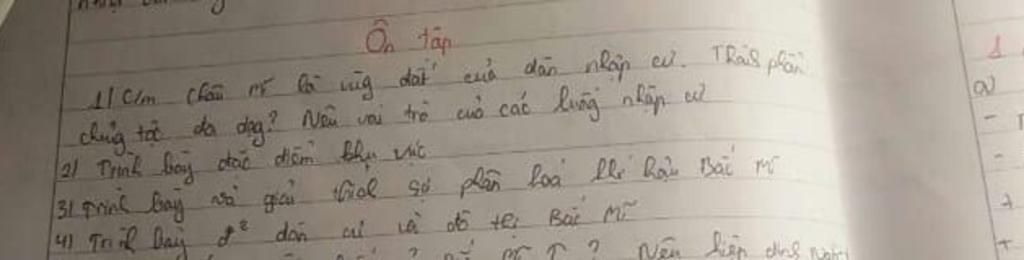 Ôn tập
1) C/m châu mĩ là vùng đất của dân nhập cư. Thành phần
chủng tộc đa dạng? Nêu vai trò của các luồng nhập cư
2) Trình bày đặc điểm khu vực
3) Trình bày và giải thích sự phân hoá khí hậu Bắc Mĩ
4) Trình bày đ² dân cư và đô thị Bắc Mĩ
? Nêu hiệp định
1
a)